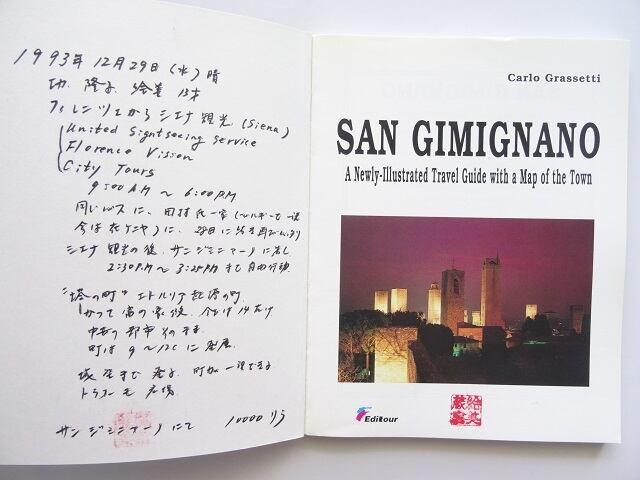 1993年12月29日(水)晴
功、隆子、絵美 13才
フィレンツェから シエナ 観光 (Siena)
United Sightseeing Service
Florence Vission
City Tours
9:00 AM ~ 6:00 P.M
同じバスに、田村氏一家
シエナ 観光の後、サンジミニアーノに
2:30P.M ~ 3:25PM まで 自由行動
"塔の町" エトルリア起源の町
かつて富の象徴、今は14だけ
中世の都市 そのまま
町は 9 ~ 12C に 発展
城 まで 登る 町が一望できる
ドゥオーモ 広場
サンジミニアーノにて 10000 リラ
Carlo Grassetti
SAN GIMIGNANO
A Newly-Illustrated Travel Guide with a Map of the Town
Editour